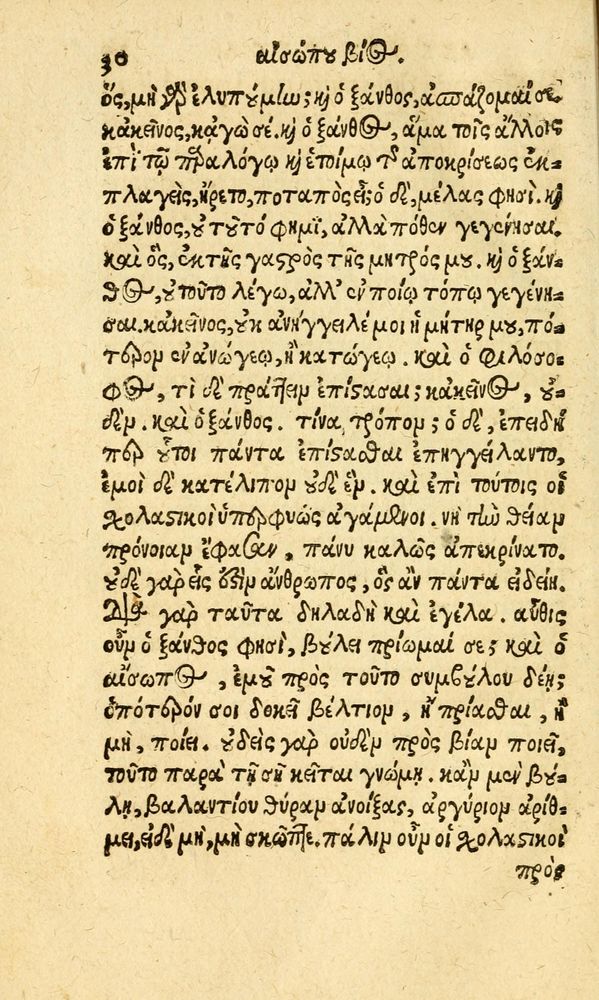 30 αἰσώπου βίος.
ὅς, μὴ γὰρ ἐλυπούμην; καὶ ὁ ξάνθος, ἀσπάζομαί σε.
κἀκεῖνος, κᾀγὼ σέ. καὶ ὁ ξάνθος, ἅμα τοῖς ἄλλοις
ἐπὶ τῷ παραλόγῳ καὶ ἑτοίμῳ τῆς ἀποκρίσεως ἐκ-
πλαγεὶς, ἤρετο, ποταπὸς εἶ; ὁ δὲ, μέλας φησί. καὶ
ὁ ξάνθος, οὐ τοῦτό φημϊ, ἀλλὰ πόθεν γεγένησαι.
καὶ ὃς, ἐκ τῆς γαστρὸς τῆς μητρός μου. καὶ ὁ ξάν-
θος, οὐ τοῦτο λέγω, ἀλλ' ἐν ποίῳ τόπῳ γεγένη-
σαι. κἀκεῖνος, οὐκ ἀνήγγειλέ μοι ἡ μήτηρ μου, πό-
τερον ἐν ἀνώγεῳ, ἢ κατώγεῳ. καὶ ὁ φιλόσο-
φος, τί δὲ πράττειν ἐπίστασαι; κἀκεῖνος, οὐ-
δέν. καὶ ὁ ξάνθος. τίνα τρόπον; ὁ δὲ, ἐπειδή
περ οὗτοι πάντα ἐπίστασθαι ἐπηγγείλαντο,
ἐμοὶ δὲ κατέλιπον οὐδὲ ἕν. καὶ ἐπὶ τούτοις οἱ
σχολαστικοὶ ὑπερφυῶς ἀγάμενοι. νὴ τὴν θείαν
πρόνοιαν ἔφασαν, πάνυ καλῶς ἀπεκρίνατο.
οὐδὲ γὰρ εἷς ἐστιν ἄνθρωπος, ὃς ἂν πάντα εἰδείη.
Διὰ γὰρ ταῦτα δηλαδὴ καὶ ἐγέλα. αὖθις
οὖν ὁ ξάνθος φησὶ, βούλει πρίωμαί σε; καὶ ὁ
αἴσωπος, ἐμοῦ πρὸς τοῦτο συμβούλου δέῃ;
ὁπότερόν σοι δοκεῖ βέλτιον, ἢ πρίασθαι, ἢ
μὴ, ποίει. οὐδεὶς γὰρ οὐδὲν πρὸς βίαν ποιεῖ,
τοῦτο παρὰ τῇ σῇ κεῖται γνώμῃ. κἂν μὲν βού-
λῃ, βαλαντίου θύραν ἀνοίξας, ἀργύριον ἀρίθ-
μει, εἰ δὲ μὴ, μὴ σκῶπτε. πάλιν οὖν οἱ σχολαστικοὶ
πρὸς